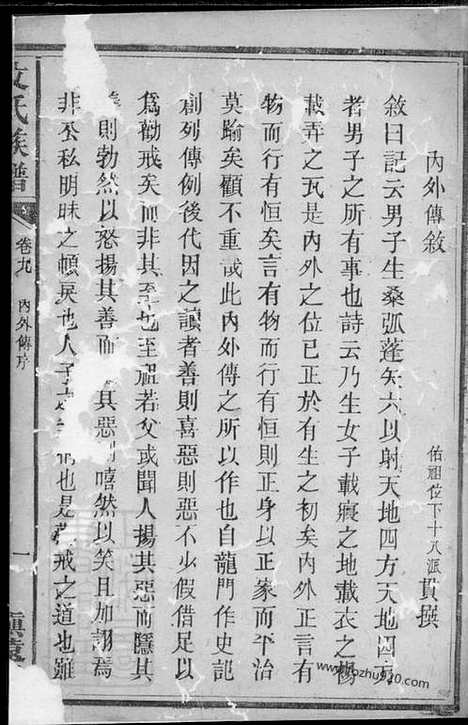 內外傳敘
佑祖位下十八派貫撰
敘曰記云男子生桑弧蓬矢六以射天地四方天地四方
者男子之所有事也詩云乃生女子載寢之地載衣之裼
載弄之瓦是內外之位已正於有生之初矣內外正言有
物而行有恒矣言有物而行有恒則正身以正家而平治
莫踰矣顧不重哉此內外傳之所以作也自龍門作史記
創列傳例後代因之讀者善則喜惡則惡不少假借足以
爲勸戒矣而非其至也至祖若父或聞人揚其惡而隱其
則勃然以怒揚其善而其惡則嘻然以笑且加詡焉
非公私明昧之頓戾也人子也是勸戒之道也雖
氏族譜
卷九
內外傳序
一
www.pozhu920.com